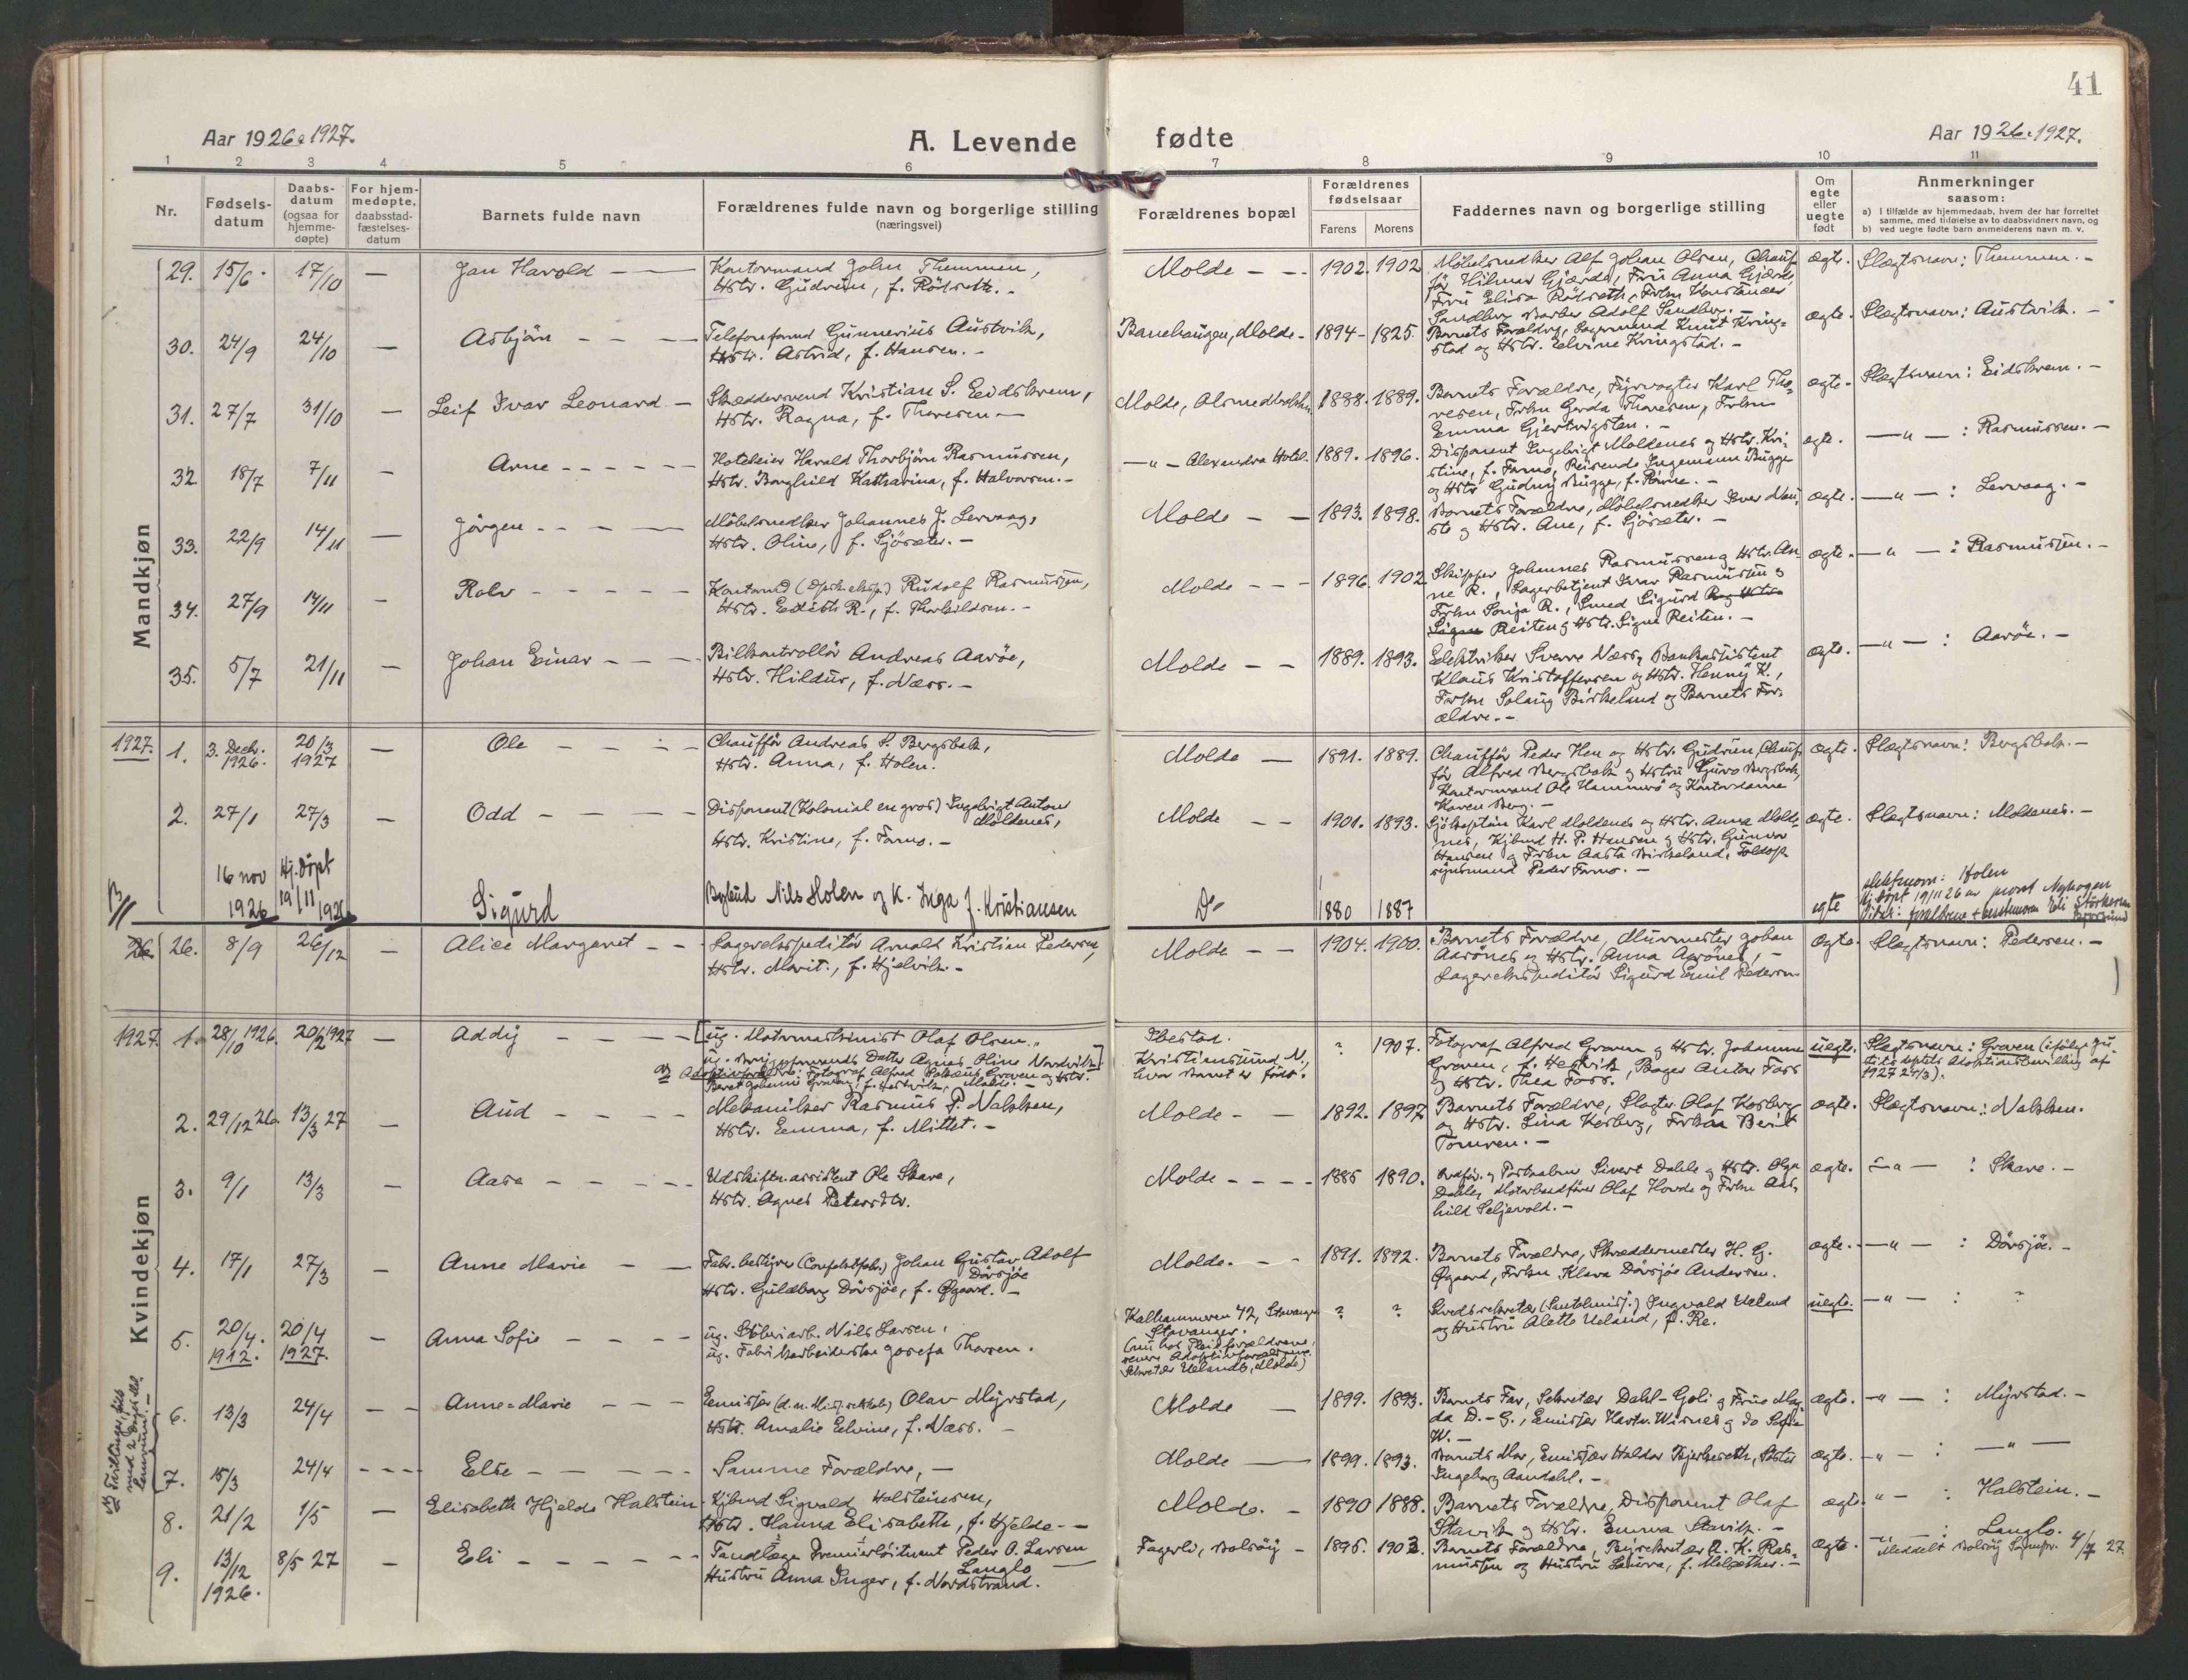 41
Aar 1926 & 1927.
A. Levende fødte
Aar 1926 & 1927.
1 2 3 4 5 6 7 8 9 10 11
Nr.
Fødsels-
datum
Daabs-
datum
(ogsaa for
hjemme-
døpte)
For hjem-
medøpte,
daabsstad-
fæstelses-
datum
Barnets fulde navn
Forældrenes fulde navn og borgerlige stilling
(næringsvei)
Forældrenes bopæl
Forældrenes
fødselsaar
Farens Morens
Faddernes navn og borgerlige stilling
Om
egte
eller
uegte
født
Anmerkninger
saasom:
a) I tilfælde av hjemmedaab, hvem der har forrettet
samme, med tilføielse av to daabsvidners navn, og
b) ved uegte fødte barn anmelderens navn m. v.
Mandkjøn
29. 15/6. 17/10 — Jan Harold — —
Kontormand John Themmen,
Hstr. Gudrun, f. Rödseth. -
Molde - - 1902. 1902
Möbelsnedker Alf Johan Olsen, Chauf-
för Hilmar Gjærde, Fru Anna Gjærde,
Fru Elisa Rödseth, Frkn Konstance
Sandberg Barber Adolf Sandberg. -
ægte. Slægtsnavn: Themmen. -
30. 24/9 24/10 — Asbjön - - -
Telefonformd Gunnerius Austvik,
Hstr. Astrid, f. Hansen. -
Banehaugen, Molde - 1894 - 1825.
Barnets Forældre, Lagermand Knut Kring-
stad og Hstr. Elvine Kringstad. -
ægte. Slægtsnavn: Austvik. -
31. 27/7 31/10 — Leif Ivar Leonard -
Skreddersvend Kristian S. Eidskrem,
Hstr. Ragna, f. Thoresen -
Molde, 1888. 1889.
Barnets Forældre, Fyrvogter Karl Tho-
resen, Frkn Gerda Thoresen, Frkn
Emma Gjertvigsten. -
ægte - Slægtsnavn: Eidskrem. -
32 18/7 7/11 - Arne - - - - -
Hoteleier Harald Thorbjörn Rasmussen,
Hstr. Borghild Katharina, f. Halvorsen. -
—"— Alexandra Hotel. 1889. 1896.
Disponent Ingebrigt Moldenes og Hstr. Kri-
stine, f. Farmo, Reisende Ingemann Bugge
og Hstr Gudny Bugge, f. -
ægte. —"— : Rasmussen. -
33. 22/9 14/11 — Jörgen - - -
Möbelsnedker Johannes J. Lervaag,
Hstr. Oline, f. Sjösæter. -
Molde - - 1893. 1898.
Barnets Forældre, Möbelsnedker Iver Nau-
ste og Hstr. Ane, f. Sjösæter. -
ægte - —"— : Lervaag. -
34. 27/9 14/11 - Rolv - - - - -
Kontormd Rudolf Rasmussen,
Hstr. Edith R., f. Thorkildsen. -
Molde - - - 1896. 1902
Skipper Johannes Rasmussen og Hstr. An-
ne R., Lagerbetjent Ivar Rasmussen og
Frkn Sonja R., Smed Sigurd
Reiten og Hstr. Signe Reiten. -
ægte. —"— : Rasmussen. -
35. 5/7 21/11 - Johan Einar - - -
Bilkontrollör Andreas Aaröe,
Hstr. Hildur, f. Næss. -
Molde - - 1889. 1893.
Elektriker Sverre Næss, Bankassistent
Klaus Kristoffersen og Hstr. Henny K.,
Frkn Solaug Birkeland og Barnets For-
ældre. -
ægte. —"— : Aaröe. -
1927. 1. 3. Decbr. 1926. 20/3 1927 — Ole - - - -
Chaufför Andreas P. Bergsbak,
Hstr. Anna, f. Holen.
Molde — 1891. 1889.
Chaufför Peder Hen og Hstr. Gudrun, Chauf-
för Alfred Bergsbak og Hstru Guro Bergsbak,
Kontormand Ole Hammerö og Kontordame
Karen Berg. -
ægte. Slægtsnavn: Bergsbak. -
2. 27/1 27/3 — Odd - - - -
Disponent (Kolonial en gros) Ingebrigt Anton
Moldenes,
Hstr. Kristine, f. Farmo. -
Molde - - 1901. 1893.
Sjökaptein Karl Moldenes og Hstr. Anna Molde-
nes, Kjbmd H. P. Hansen og Hstr. Gunvor
Hansen og Frkn Aasta Birkeland, Toldop-
synsmand Peder Farmo. -
ægte. Slægtsnavn: Moldenes. -
16 nov 1926 Hj. döpt 19/11 1926 Sigurd
Bybud Nils Holen og K. Inga f. Kristiansen
Do 1880 1887
egte
Slektsnavn: Holen
Hj döpt 19/11 26 av prost Nyhagen
Kvindekjøn
26. 8/9 26/12 - Alice Margaret - -
Lagerekspeditör Arnold Kristian Pedersen,
Hstr. Marit., f. Hjelvik. -
Molde - - 1904. 1900.
Barnets Forældre, Murmester Johan
Aarönes og Hstr. Anna Aarönes, -
Lagerekspeditör Sigurd Emil Pedersen
Ægte. Slægtsnavn: Pedersen. -
1927. 1. 28/10 1926. 20/2 1927 — Addy - - -
[ug. Motormaskinist Olaf Olsen.,
ug. Datter Agnes Oline Nordvik]
Adoptivforældre: Fotograf Alfred Groven og Hstr.
Beret Johanne Groven, f. Hestvik, Molde. -
Ibestad.
Kristiansund N,
hvor Barnet er født.
? 1907.
Fotograf Alfred Groven og Hstr. Johanne
Groven, f. Hestvik, Bager Anton Foss
og Hstr. Thea Foss.
uegte. Slægtsnavn: Groven (ifølge Ju-
stitsdeptets Adoptionsbevilling af
1927 24/3).
2. 29/12 26 13/3 27 — Aud - - - -
Mekaniker Rasmus P. Nakken,
Hstr. Emma, f. Mittet. -
Molde - - 1892. 1897
Barnets Forældre, Slagter Olaf Korberg
og Hstr. Lina Korberg, Frkn Berit
Tomren. -
ægte. Slægtsnavn: Nakken.
3. 9/1 13/3 - Aase - - - -
Udskiftn.assistent Ole Skare,
Hstr. Agnes Petersdtr.
Molde - - - - 1885 1890.
Sivert Dahle og Hstr. Olga
Dahle, Olaf Hovde og Frkn Aas-
hild Seljevold. -
ægte. —"— : Skare. -
4. 17/1 27/3 - Anne Marie - -
Fabr. bestyrer Johan Gustav Adolf
Dövsjöe
Hstr. Guldborg Dövsjöe, f. Øgaard. -
Molde. - - 1891. 1892.
Barnets Forældre, Skræddermester H. G.
Øgaard, Frkn Klara Dövsjöe Andersen.
ægte. - —"— : Dövsjöe. -
5. 20/4. 1912. 20/4 1927. - Anna Sofie - - - -
ug. Støberiarb. Nils Larsen,
ug. Fabrikarbeiderske Josefa Thorsen.
Kalhammeren 42, Stavanger
Stavanger.
(nu hos Pleieforældrene,
senere Adoptivforældrene
Sekretær Uelands, Molde)
? ?
Kredssekretær (Santalmisj.) Ingvald Ueland
og Hustru Alette Ueland, f. Re.
uegte. —"— : ?
6. 13/3 24/4 - Anne=Marie - - -
Emissær Olav Myrstad,
Hstr. Amalie Elvine, f. Næss. -
Molde - 1899. 1893.
Barnets Far, Sekretær Dahl-Goli og Frue Mag-
da D.-G., Emissær Hartv. Wisnes og do Sofie
W. -
ægte. —"— : Myrstad. -
7. 15/3 24/4 - - - Else - - - - -
Samme Forældre, -
Molde — 1899. 1893.
Barnets Mor, Emissær Haldor Bjerkeseth,
Ingeborg Aandahl. -
ægte. —"— : —"—
8. 21/2 1/5 — Elisabeth Hjelde Halstein.
Kjbmd Sigvald Halsteinsen,
Hstr. Hanna Elisabeth, f. Hjelde. -
Molde. - 1890 1888.
Barnets Forældre, Disponent Olaf
Stavik og Hstr. Emma Stavik. -
ægte. —"— : Halstein. -
9. 13/12 1926. 8/5 27 - Eli - - - - -
Tandlæge Premierlöitnant Peder O. Larsen
Langlo
Hustru Anna Inger, f. Nordstrand.
Fagerli, Bolsöy - 1895. 1903.
Barnets Forældre, A. K. Ras-
mussen og Hustru Laura, f. Melsether. -
ægte. —"— : Langlo.
Meddelt Bolsöy Sognepr. 4/7 27.